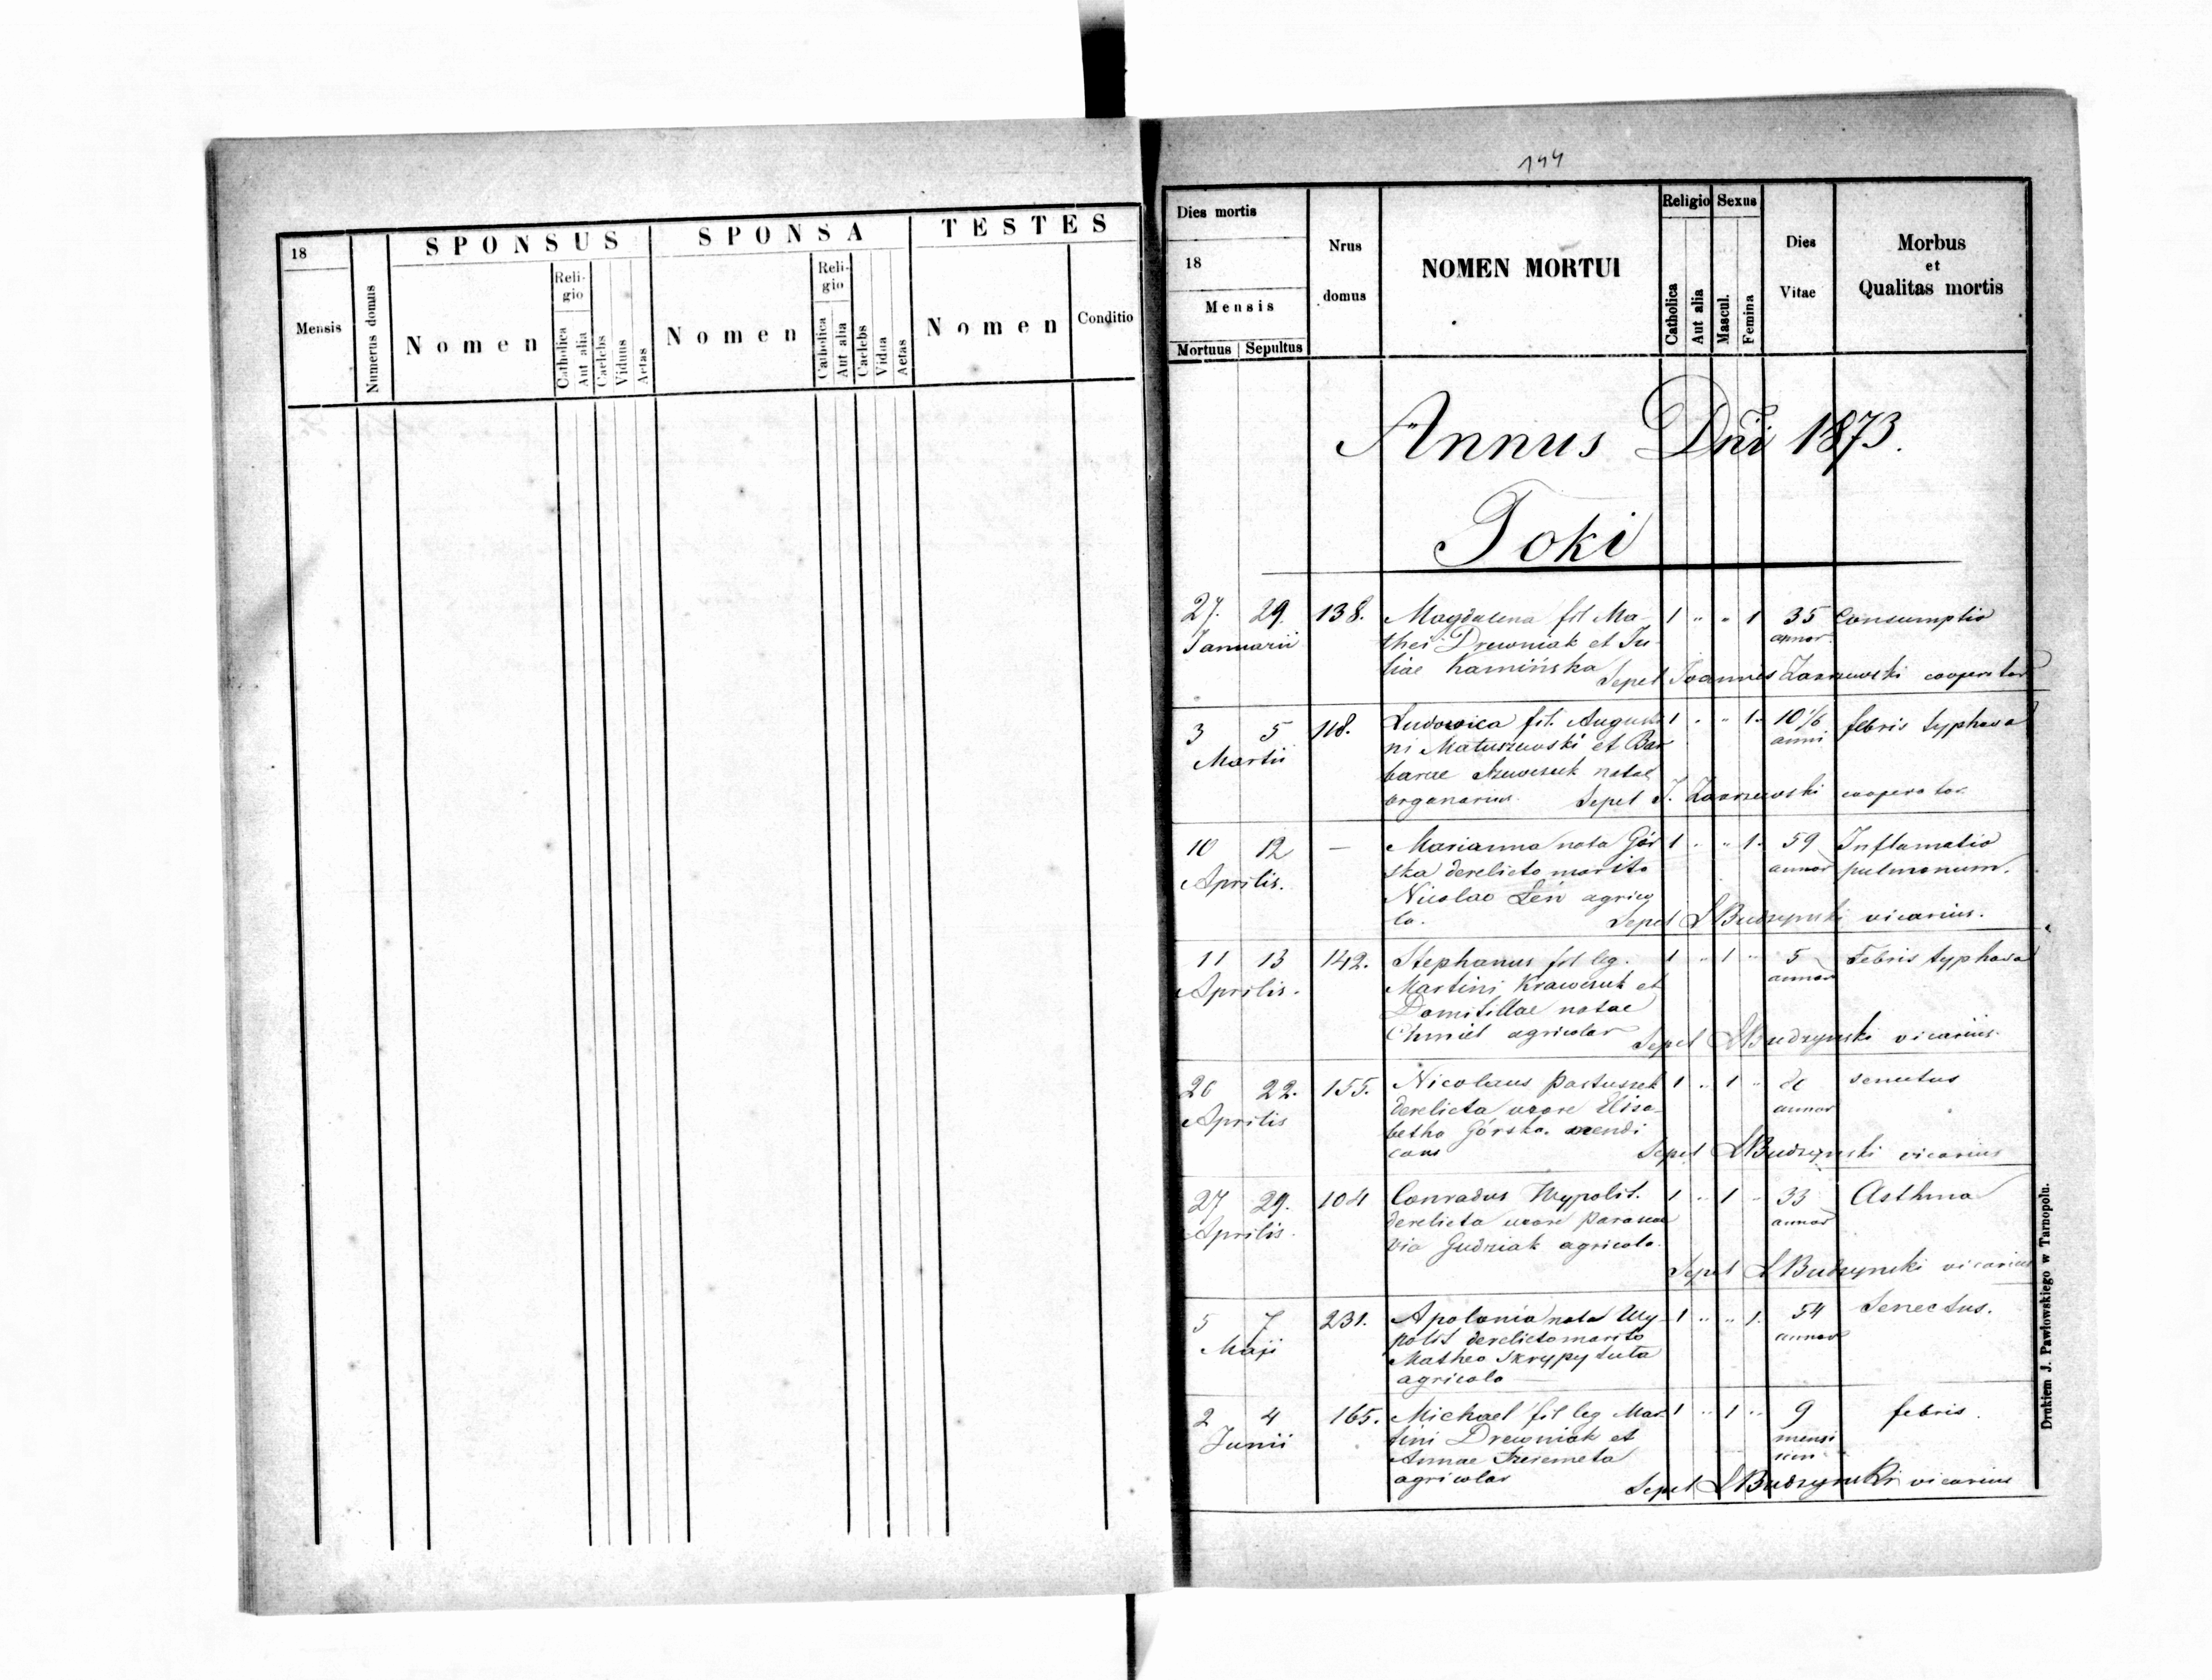 18
Mensis
Numerus domus
SPONSUS
Nomen
Reli-
gio
Catholica
Aut alia
Caelebs
Viduus
Aetas
SPONSA
Nomen
Reli-
gio
Catholica
Aut alia
Caelebs
Vidua
Aetas
TESTES
Nomen
Conditio
144
Dies mortis
18
Mensis
Mortuus Sepultus
Nrus
domus
NOMEN MORTUI
Religio
Catholica
Aut alia
Sexus
Mascul.
Femina
Dies
Vitae
Morbus
et
Qualitas mortis
Annus Dni 1873.
Toki
27. 29. 138. Magdalena fil Ma- 1 " " 1 35 Consumptio
Januarii thei Drewniak et Ju- annor
liae Kamińska Sepel Joannes cooperator
3 5 118. Ludovica fil. Augusti 1 " " 1. 10 1/6 febris typhosa
Martii ni Matuszewski et Bar anni
barae Szewczuk natae
organarius. Sepel J. cooperator
10 12 — Marianna nata Gór 1 " " 1. 59 Inflamatio
Aprilis. ska derelicto marito annor pulmonum.
Nicolao Leń agrico
la. Sepel L Budzynski vicarius.
11 13 142. Stephanus fil leg. 1 " 1 " 5 Febris typhosa
Aprilis. Martini Krawczuk et annor
Domitillae natae
Chmiel agricolar Sepel L Budzynski vicarius.
20 22. 155. Nicolaus Pastuszek 1 " 1 " 80 senectus
Aprilis derelicta uxore Elisa- annor
betha Górska. mendi
cans Sepel L Budzynski vicarius
27 29. 104 Conradus Wypolit. 1 " 1 " 33 Asthma
Aprilis. derelicta uxore Parasce annor
via Gudziak agricola.
Sepel L Budzynski vicarius
5 7 231. Apolonia nata Wy- 1 " " 1. 54 Senectus.
Maji polit derelicto marito annor
Matheo Skrypytuta
agricola
2 4 165. Michael fil leg Mar- 1 " 1 " 9 febris.
Junii tini Drewniak et mensi
Annae
agricolar Sepel L Budzynski vicarius
Drukiem J. Pawłowskiego w Tarnopolu.